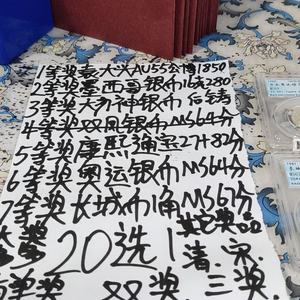 1等奖袁大头AU55公博1850
2等奖墨西哥银币16元280
3等奖大力神银币后铸
4等奖双凤银币MS64分
5等奖康熙通宝27+82分
6等奖奥运银币MS64分
7等奖长城币1角MS67分
20选1 其它奖品
清.宋.
双奖 三奖